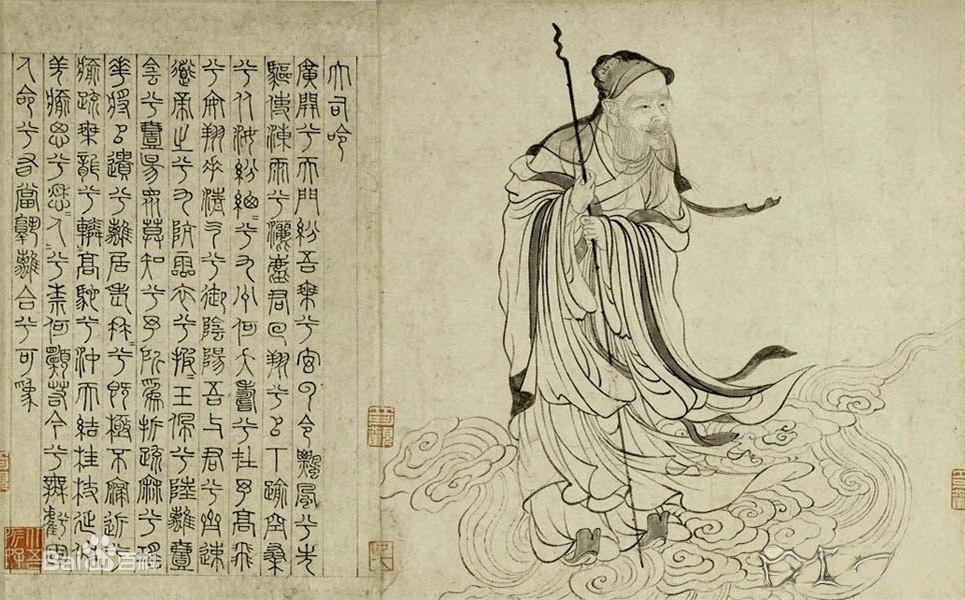 大司命
廣開兮天門紛吾乘兮玄云令飄風兮先
驅使涷雨兮灑塵君回翔兮以下踰空桑
兮从女紛總〻兮九州何夭壽兮在予高飛
兮安翔乘清气兮御陰陽吾与君兮齊速
導帝之兮九阬靈衣兮被〻玉佩兮陸離壹
陰兮壹陽眾莫知兮予所為折疏麻兮瑤
華將以遺兮離居老冉〻兮既極不寖近兮
愈疏乘龍兮轔〻高馳兮沖天結桂枝兮延佇
羌愈思兮愁〻人〻兮奈何願若今兮無虧固
人命兮有當孰離合兮可為
Baidu百科